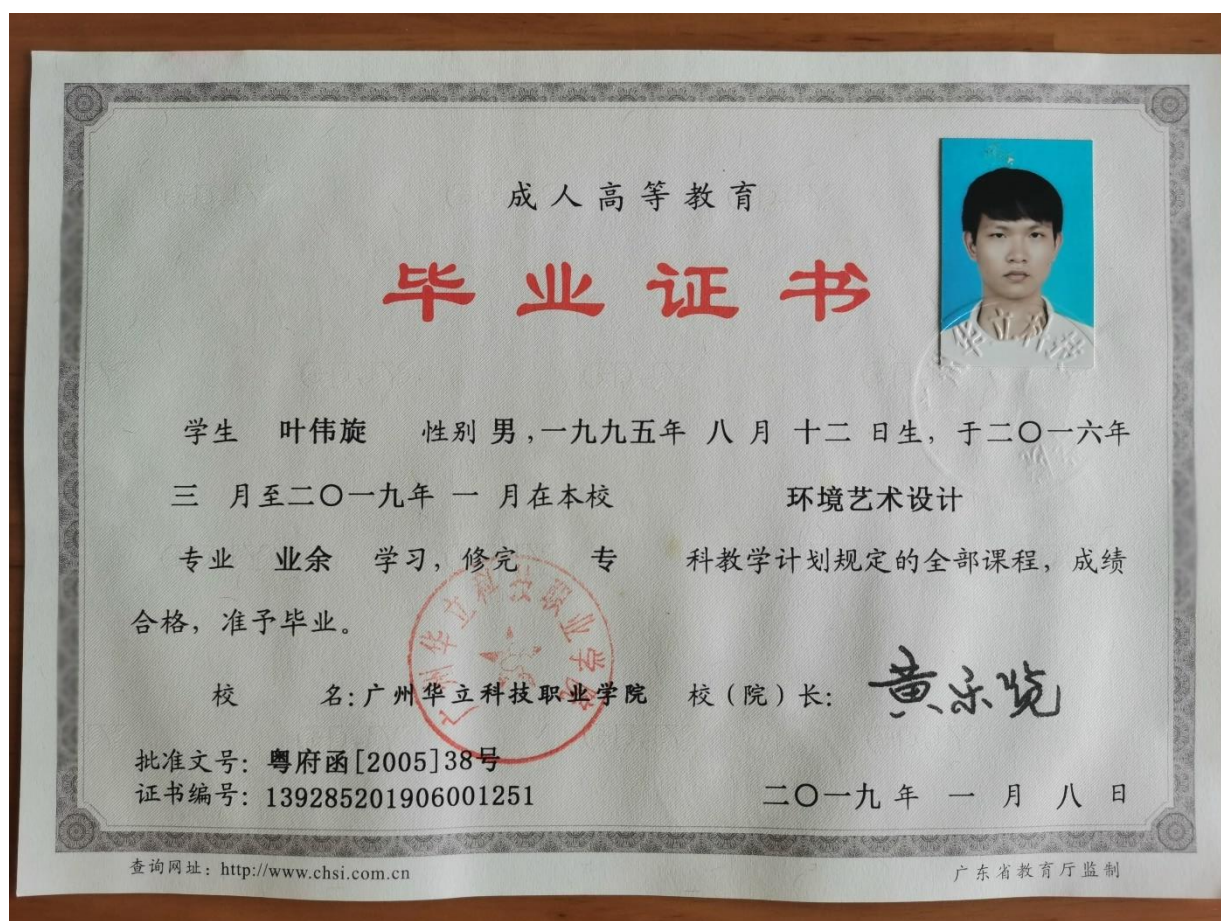 成人高等教育
毕业证书
学生 叶伟旋 性别 男,一九九五年 八 月 十二 日生, 于二〇一六年
三 月至二〇一九年 一 月在本校 环境艺术设计
专业 业余 学习, 修完 专 科教学计划规定的全部课程, 成绩
合格, 准予毕业。
校 名: 广州华立科技职业学院 校(院)长: 黄乐览
批准文号: 粤府函[2005]38号
证书编号: 139285201906001251 二〇一九 年 一 月 八 日
查询网址: http://www.chsi.com.cn 广东省教育厅监制
广州华立科技职业学院